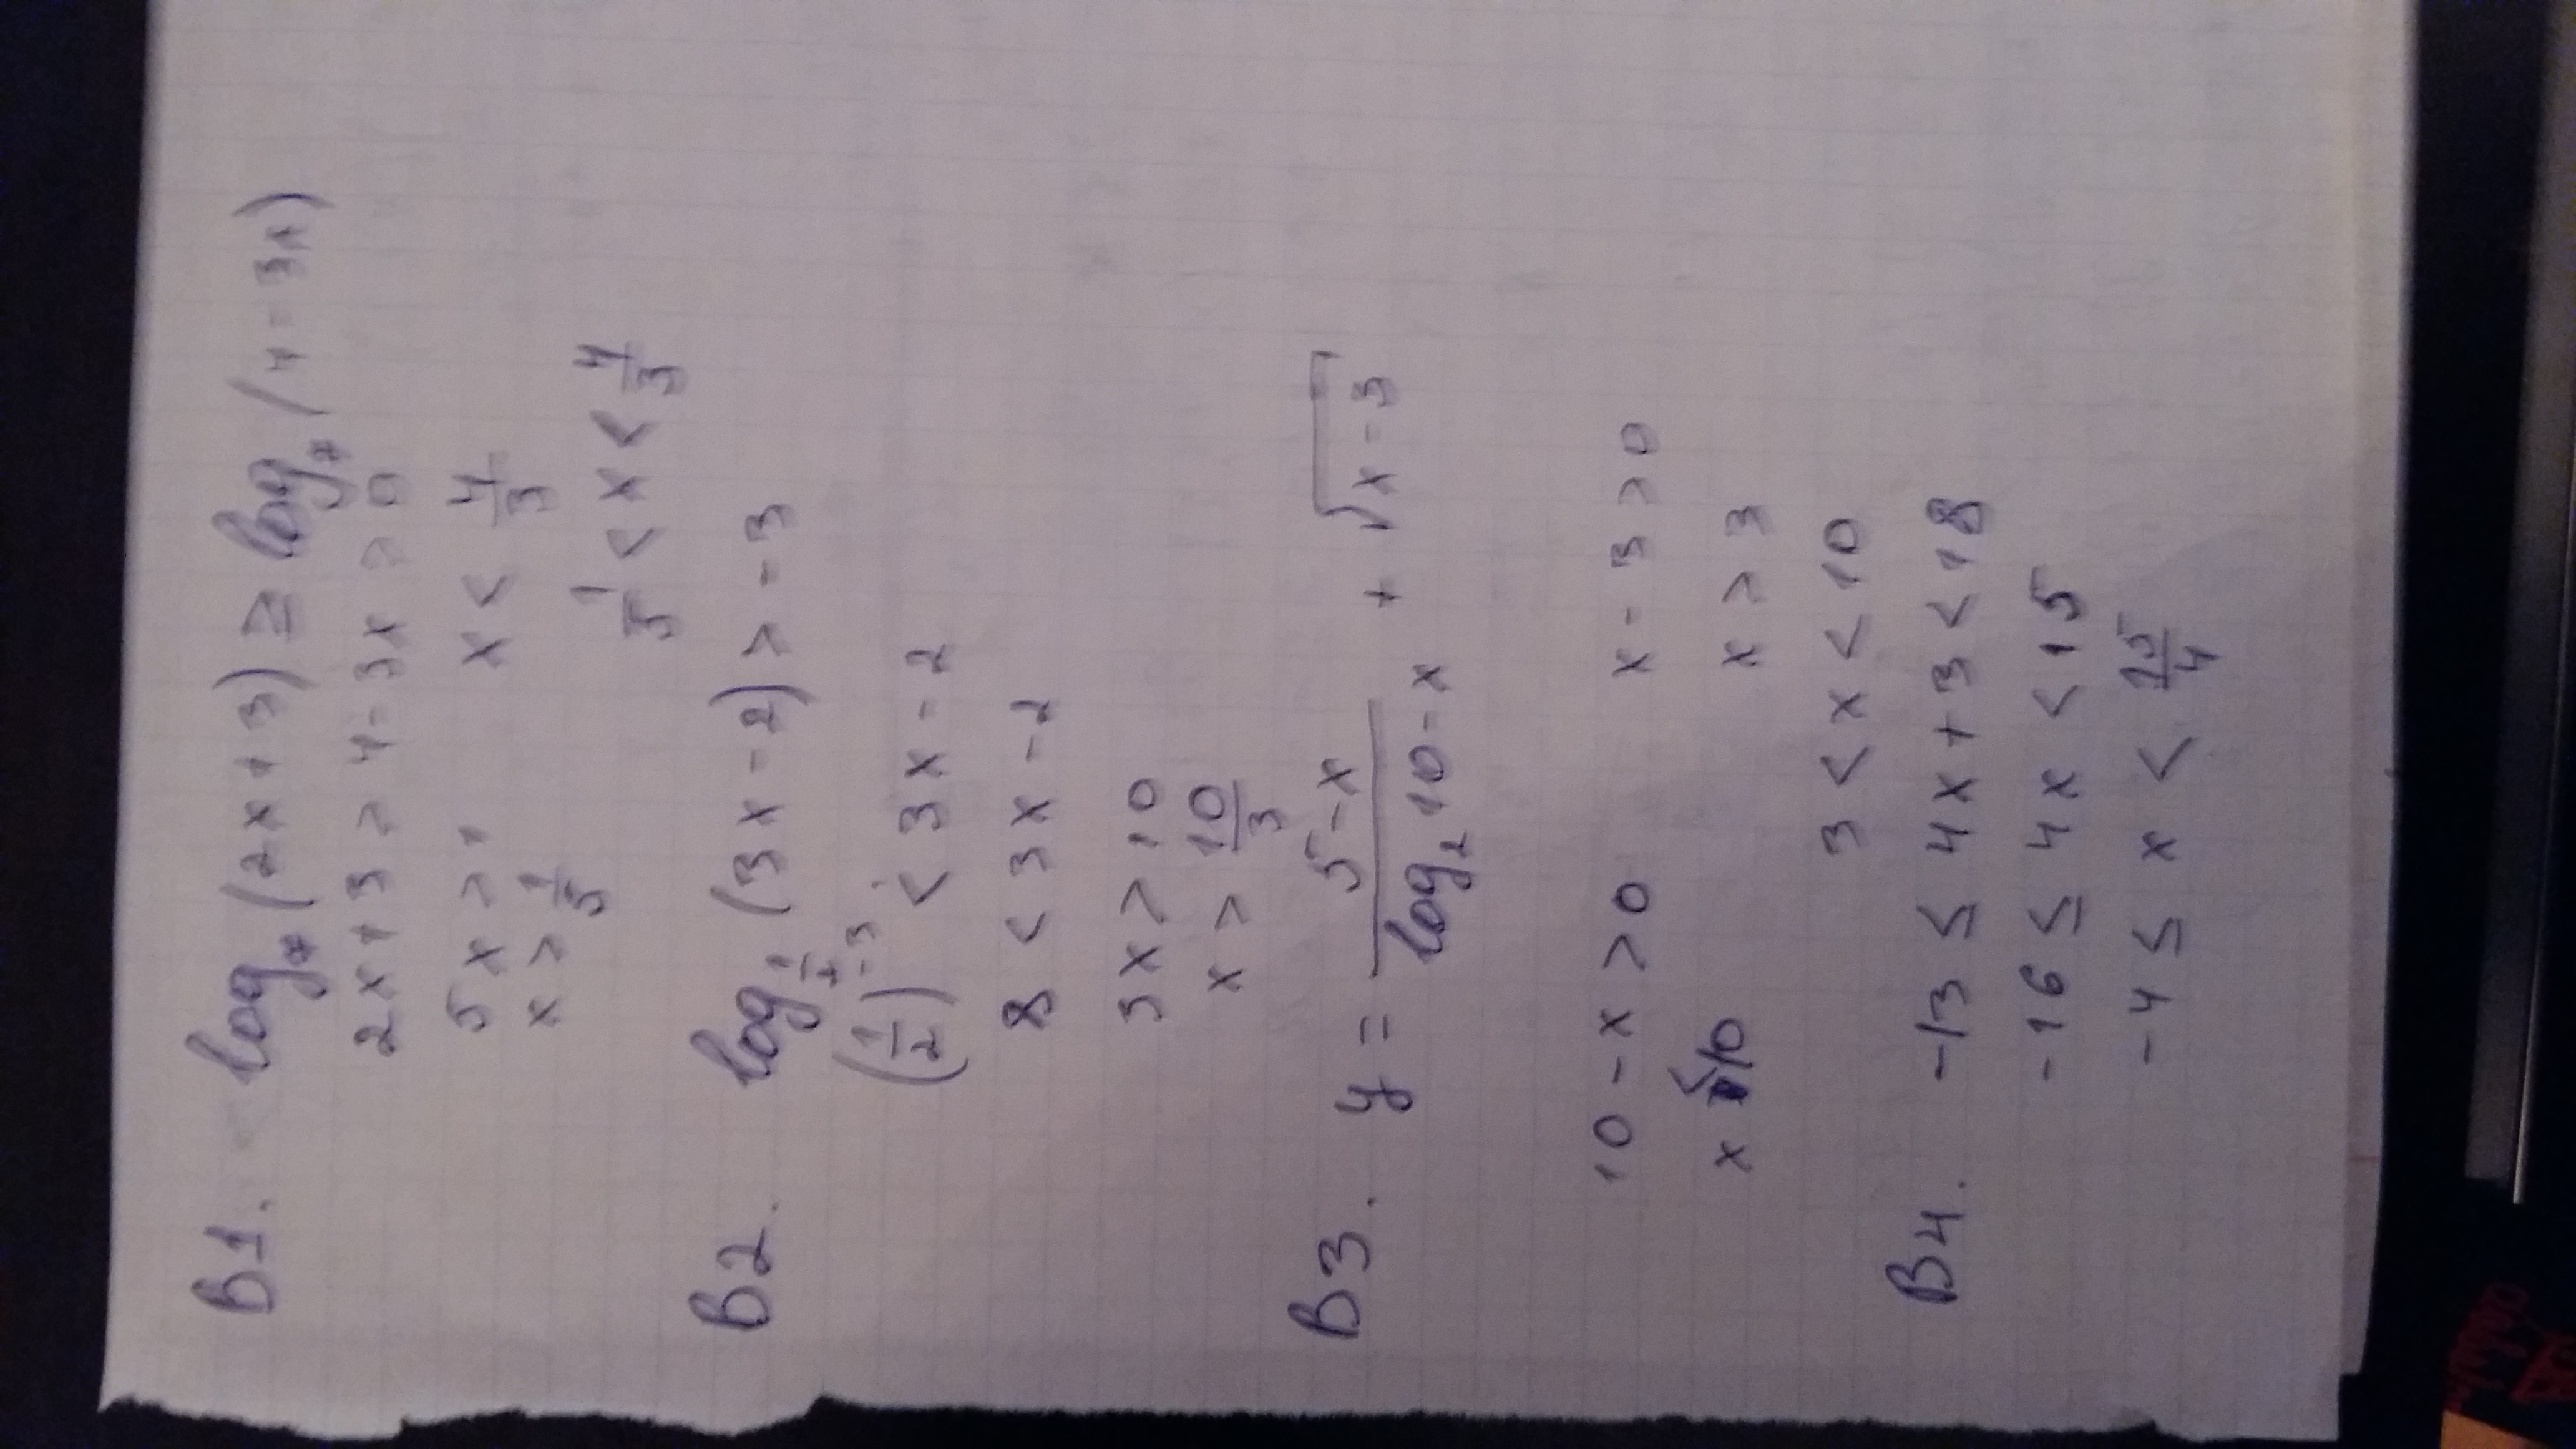 B1. log₇(2x+3) ≥ log₇(4-3x)
2x+3 > 4-3x > 0
5x > 1 x < 4/3
x > 1/5 1/5 < x < 4/3
B2. log_{1/2}(3x-2) > -3
(1/2)^{-3} < 3x-2
8 < 3x-2
3x > 10
x > 10/3
B3. y = (5-x)/(log₂ 10-x) + √(x-3)
10-x > 0 x-3 > 0
x < 10 x > 3
3 < x < 10
B4. -13 ≤ 4x+3 < 18
-16 ≤ 4x < 15
-4 ≤ x < 15/4